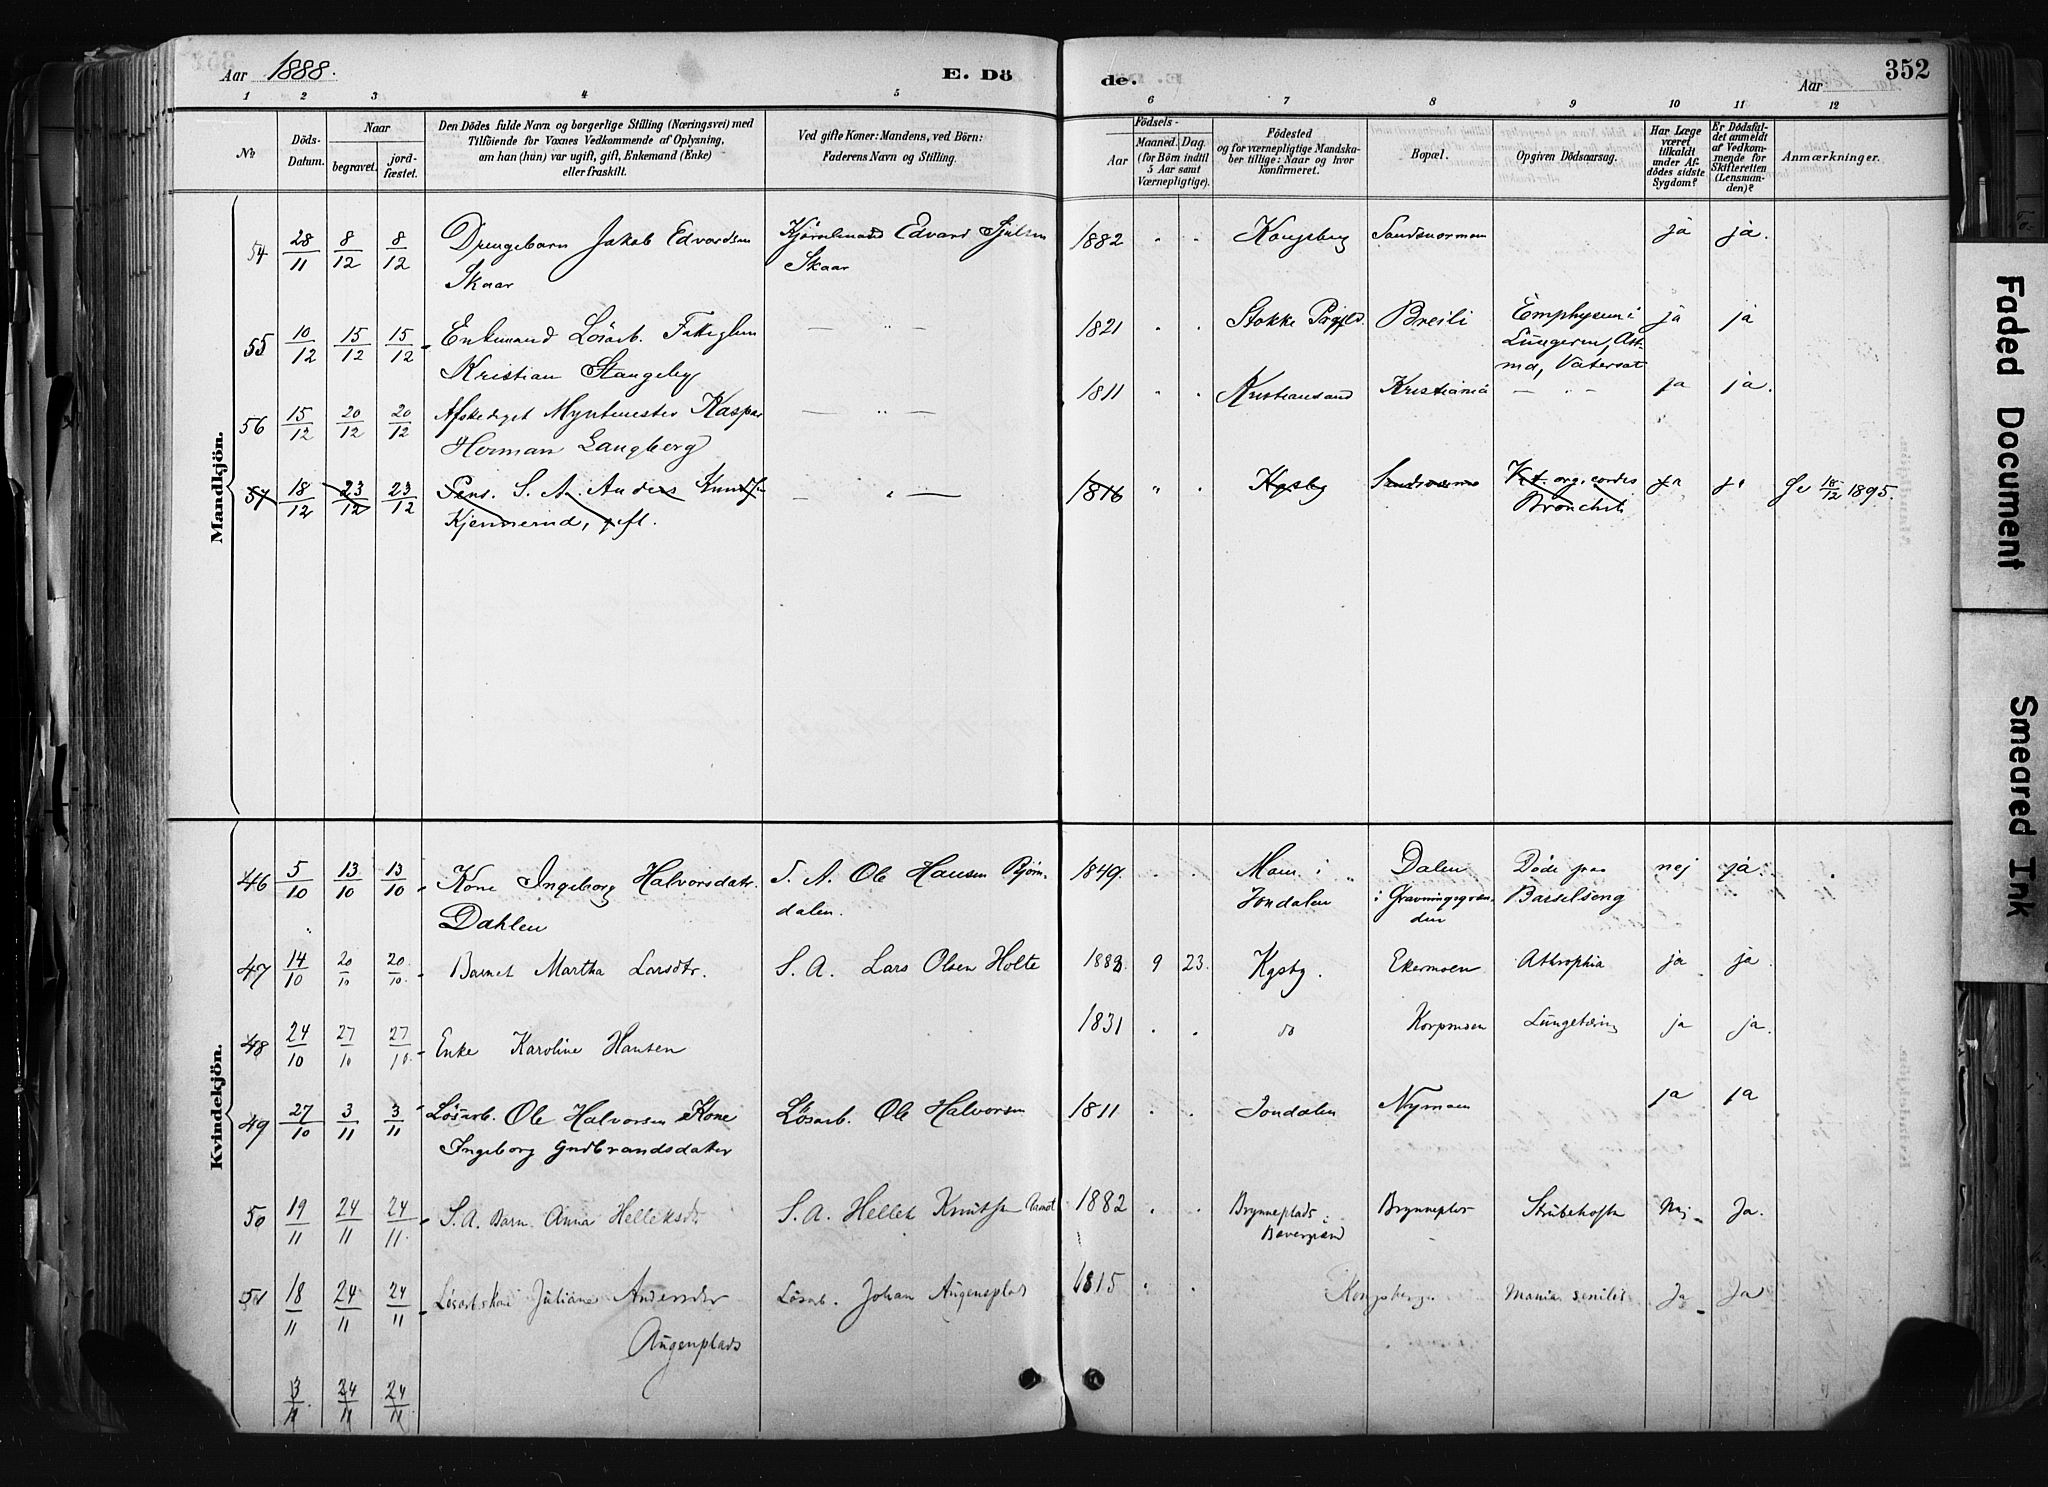 Aar 1888.
E. Dö
de.
Aar
352
1 2 3 4 5
6 7 8 9 10 11 12
No
Döds-
Datum.
Naar
begravet.
jord-
fæstet.
Den Dödes fulde Navn og borgerlige Stilling (Næringsvei) med
Tilföiende for Voxnes Vedkommende af Oplysning,
om han (hun) var ugift, gift, Enkemand (Enke)
eller fraskilt.
Ved gifte Koner: Mandens, ved Börn:
Faderens Navn og Stilling.
Födsels-
Aar
Maaned. Dag.
(for Börn indtil
5 Aar samt
Værnepligtige).
Födested
og for værnepligtige Mandska-
ber tillige: Naar og hvor
konfirmeret.
Bopæl.
Opgiven Dödsaarsag.
Har Læge
været
tilkaldt
under Af-
dödes sidste
Sygdom?
Er Dödsfal-
det anmeldt
af Vedkom-
mende for
Skifteretten
(Lensman-
den)?
Anmærkninger.
Mandkjön.
54 28/11 8/12 8/12 Drengebarn Jakob Edvardsen Edvard 1882 " " Kongsberg ja ja.
Skaar Skaar
55 10/12 15/12 15/12 Enkemand Lösarb. — " — 1821 " " Stokke Breili Emphysem i ja ja
Kristian Stangeby Lungerne, Ast-
ma, Vatersot
56 15/12 20/12 20/12 Afskediget Myntmester Kaspar — " — 1811 " " Kristiansand Kristiania — " — ja ja.
Herman Langberg
57 18/12 23/12 23/12 Pens. S. A. Anders — " — 1816 " " Kgsbg org. cordis ja ja Se 18/12 1895.
Kjennerud, gift. Bronchit
Kvindekjön.
46 5/10 13/10 13/10 Kone Ingeborg Halvorsdatr. S. A. Ole Hansen Björn- 1849. " " i Dalen Döde paa nej ja.
Dahlen dalen. Jondalen i Barselseng
47 14/10 20/10 20/10 Barnet Martha Larsdtr. S. A. Lars Olsen Holte 1888. 9 23. Kgsbg. Ekermoen Athrophia ja ja
48 24/10 27/10 27/10 Enke Karoline Hansen 1831 . . do Korpmoen Lungetæring ja ja.
49 27/10 3/11 3/11 Lösarb. Ole Halvorsen Kone Lösarb. Ole Halvorsen 1811 . . Jondalen Nymoen ja ja
Ingeborg Gudbrandsdatter
50 19/11 24/11 24/11 S. A. Barn Anna Helleksdr S. A. Hellek 1882 . . Brynneplads i Strubehoste Nej Ja.
51 18/11 24/11 24/11 Juliane Lösarb. Johan Augensplads 1815 . . Kongsberg. Mania senilis Ja Ja
Augenplads
3/11 24/11 24/11
Faded Document
Smeared Ink